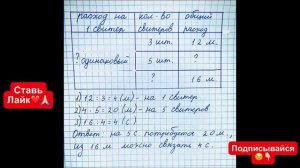 расход на 1 свитер
кол-во свитеров
общий расход
3 шт.
12 м
? одинаковый
5 шт.
?
?
16 м
Ставь
Лайк
1) 12 : 3 = 4 (м) - на 1 свитер
2) 4 · 5 = 20 (м) - на 5 свитеров
3) 16 : 4 = 4 (с)
Ответ: на 5 с потребуется 20 м,
из 16 м можно связать 4 с.
Подписывайся